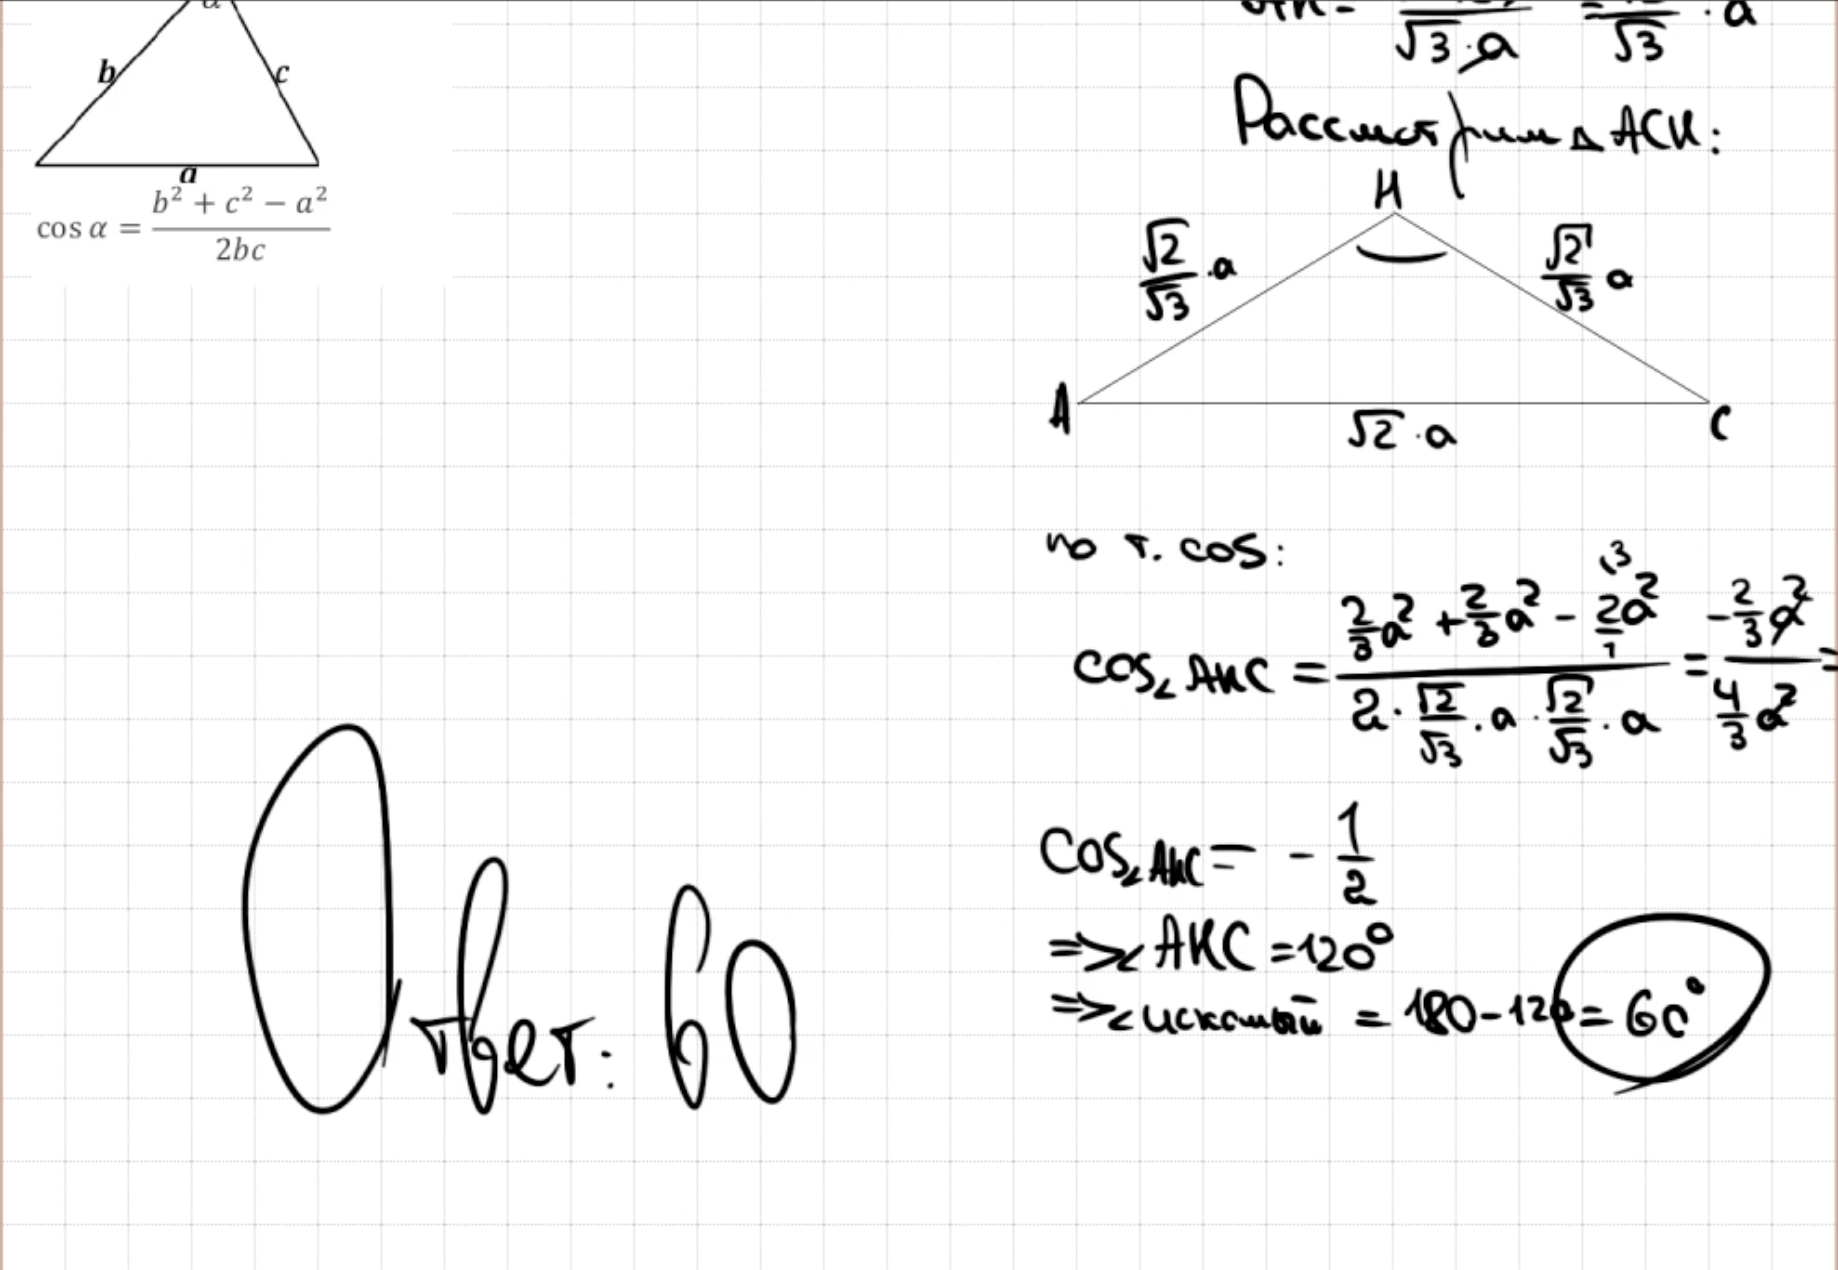 b
c
a
cos α = (b² + c² − a²) / (2bc)
√3·a   √3 · a
Рассмотрим △ АСН:
Н
√2/√3 ·a
√2/√3 a
А
С
√2 ·a
по т. cos:
cos∠АНС = (2/3a² + 2/3a² − 2/1a²) / (2·√2/√3·a·√2/√3·a) = (−2/3a²) / (4/3a²) =
cos∠АНС = − 1/2
=> ∠АНС = 120°
=> ∠искомый = 180−120 = 60°
Ответ: 60